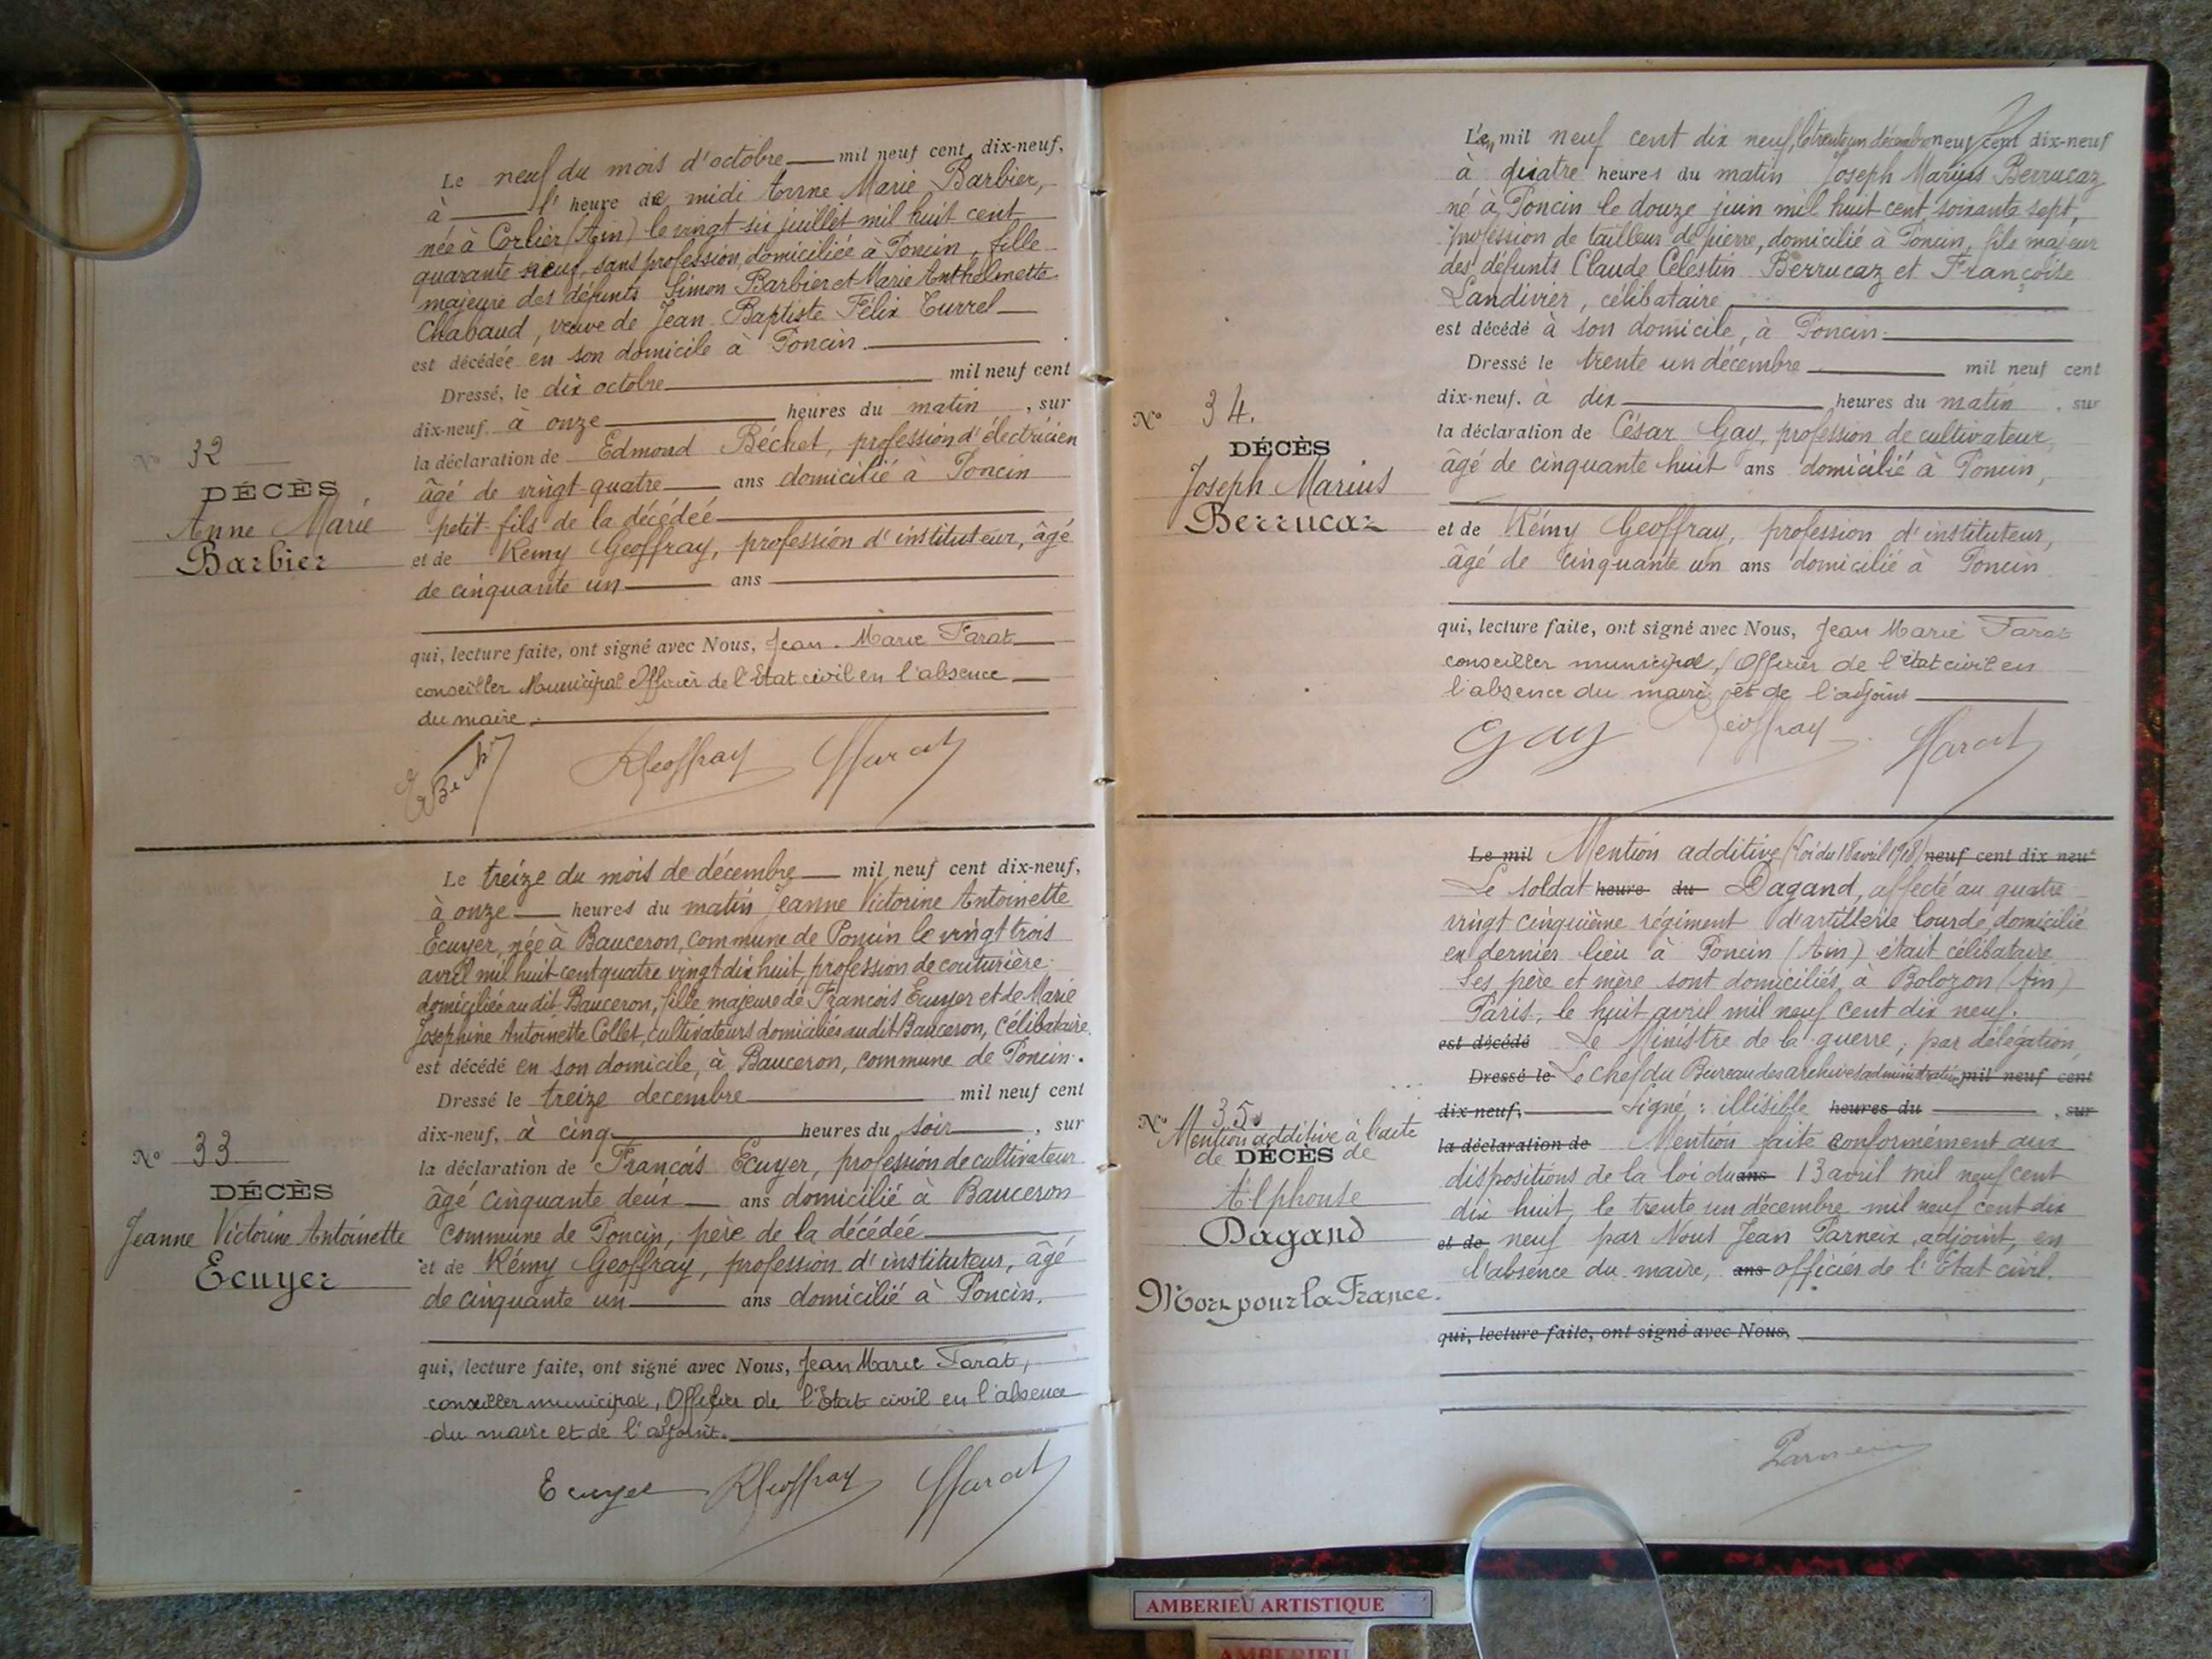 N° 32
DÉCÈS
Anne Marie
Barbier
Le neuf du mois d'octobre mil neuf cent dix-neuf,
à l'heure de midi Anne Marie Barbier,
née à Corlier (Ain) le vingt-six juillet mil huit cent
quarante neuf, sans profession, domiciliée à Poncin, fille
majeure des défunts Simon Barbier et Marie Anthelmette
Chabaud, veuve de Jean Baptiste Félix Turrel
est décédée en son domicile à Poncin.
Dressé, le dix octobre mil neuf cent
dix-neuf. à onze heures du matin, sur
la déclaration de Edmond Béchet, profession d'électricien
âgé de vingt-quatre ans domicilié à Poncin
petit-fils de la décédée
et de Rémy Geoffray, profession d'instituteur, âgé
de cinquante un ans
qui, lecture faite, ont signé avec Nous, Jean Marie Farat
conseiller Municipal Officier de l'Etat civil en l'absence
du maire.
RGeoffray Farat
N° 33
DÉCÈS
Jeanne Victorine Antoinette
Ecuyer
Le treize du mois de décembre mil neuf cent dix-neuf,
à onze heures du matin Jeanne Victorine Antoinette
Ecuyer, née à Bauceron, commune de Poncin le vingt trois
avril mil huit cent quatre vingt dix huit, profession de couturière
domiciliée audit Bauceron, fille majeure de François Ecuyer et de Marie
Joséphine Antoinette Collet, cultivateurs domiciliés audit Bauceron, célibataire
est décédé en son domicile, à Bauceron, commune de Poncin.
Dressé le treize decembre mil neuf cent
dix-neuf, à cinq heures du soir, sur
la déclaration de François Ecuyer, profession de cultivateur
âgé cinquante deux ans domicilié à Bauceron
commune de Poncin, père de la décédée
et de Rémy Geoffray, profession d'instituteur, âgé
de cinquante un ans domicilié à Poncin.
qui, lecture faite, ont signé avec Nous, Jean Marie Farat,
conseiller municipal, Officier de l'Etat civil en l'absence
du maire et de l'adjoint.
Ecuyer RGeoffray Farat
N° 34.
DÉCÈS
Joseph Marius
Berrucaz
L'en mil neuf cent dix neuf, le trente un décembre neuf cent dix-neuf
à quatre heures du matin Joseph Marius Berrucaz
né à Poncin le douze juin mil huit cent soixante sept,
profession de tailleur de pierre, domicilié à Poncin, fils majeur
des défunts Claude Célestin Berrucaz et Françoise
Landivier, célibataire
est décédé à son domicile, à Poncin.
Dressé le trente un décembre mil neuf cent
dix-neuf. à dix heures du matin, sur
la déclaration de César Gay, profession de cultivateur,
âgé de cinquante huit ans domicilié à Poncin,
et de Rémy Geoffray, profession d'instituteur,
âgé de cinquante un ans domicilié à Poncin
qui, lecture faite, ont signé avec Nous, Jean Marie Farat
conseiller municipal, Officier de l'état civil en
l'absence du maire et de l'adjoint
Gay Geoffray Farat
N° 35
Mention additive à l'acte
de DÉCÈS de
Alphonse
Dagand
Mort pour la France.
Le mil Mention additive (loi du 18 avril 1918) neuf cent dix neuf
Le soldat heure du Dagand, affecté au quatre
vingt cinquième régiment d'artillerie lourde, domicilié
en dernier lieu à Poncin (Ain) était célibataire
Ses père et mère sont domiciliés à Bolozon (Ain)
Paris, le huit avril mil neuf cent dix neuf.
est décédé Le Ministre de la guerre, par délégation,
Dressé le Le chef du Bureau des archives administratives mil neuf cent
dix-neuf, signé : illisible heures du , sur
la déclaration de Mention faite conformément aux
dispositions de la loi du ans 13 avril mil neuf cent
dix huit, le trente un décembre mil neuf cent dix
et de neuf par Nous Jean Parneix, adjoint, en
l'absence du maire, ans officier de l'Etat civil.
qui, lecture faite, ont signé avec Nous,
Parneix
AMBERIEU ARTISTIQUE
AMBERIEU